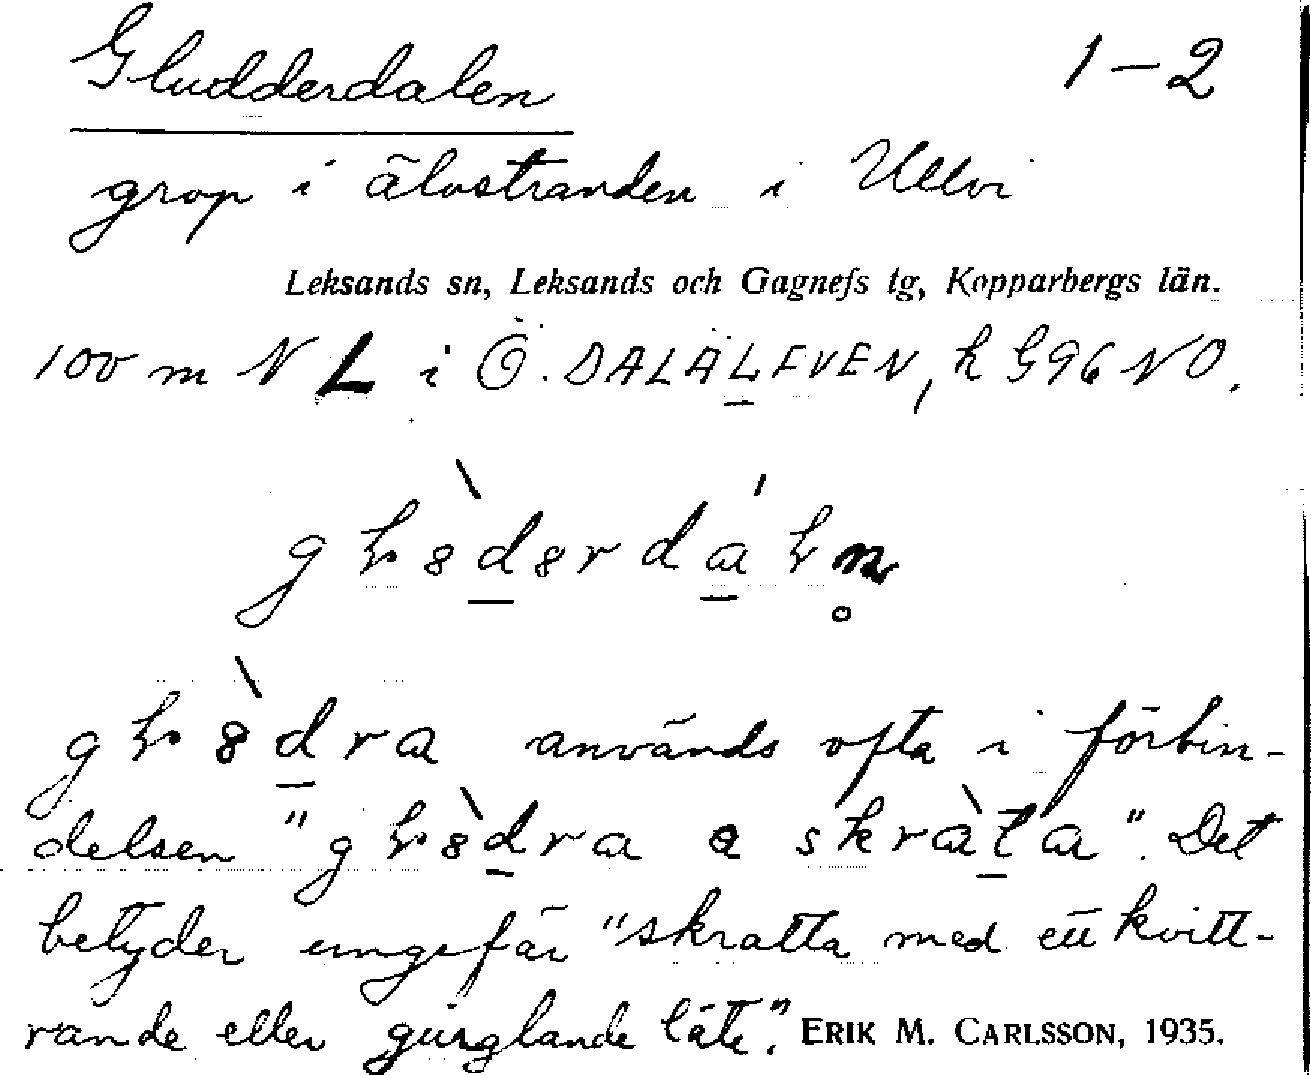 Gludderdalen 1-2
grop i älvstranden i Ullvi
Leksands sn, Leksands och Gagnefs tg, Kopparbergs län.
100 m N L i Ö. DALÄLFVEN, k G96 NO.
används ofta i förbin-
delsen " ". Det
betyder ungefär "skratta med ett kvitt-
rande eller gurglande läte". ERIK M. CARLSSON, 1935.